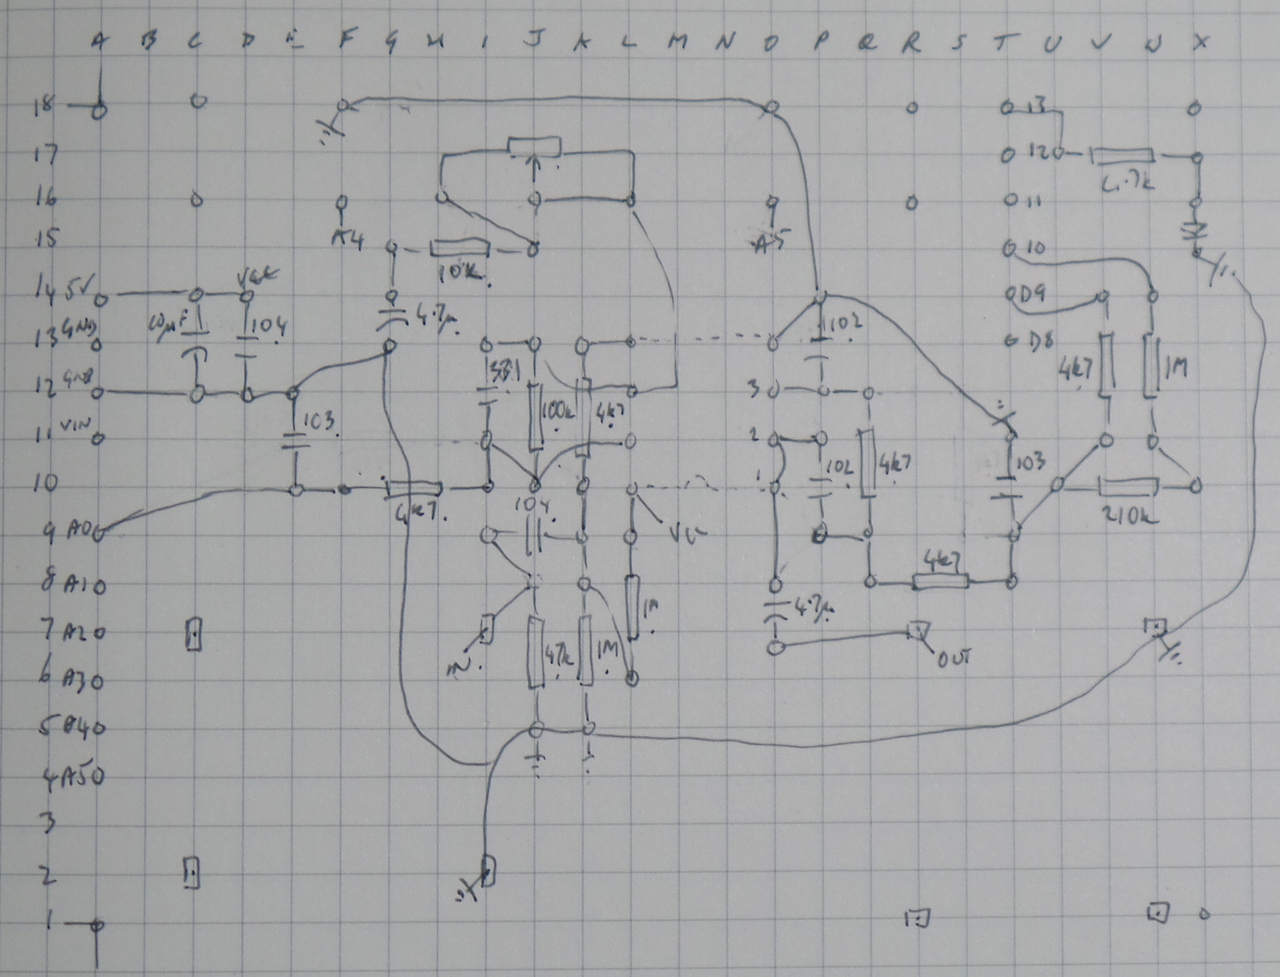 A B C D E F G H I J K L M N O P Q R S T U V W X
18 13
17 12
4.7k
16 11
A4 A5
15 10
10k
14 5V Vcc D9
10µF 104 4.7µ 1102
13 GND D8
331 4k7 1M
12 GND 3
103 100k 4k7
11 VIN 2
102 4k7 103
10 1
4k7 104 210k
9 A0
4k7
8 A1
4.7µ 1M
7 A2
IN 47k 1M OUT
6 A3
5 A4
4 A5
3
2
1